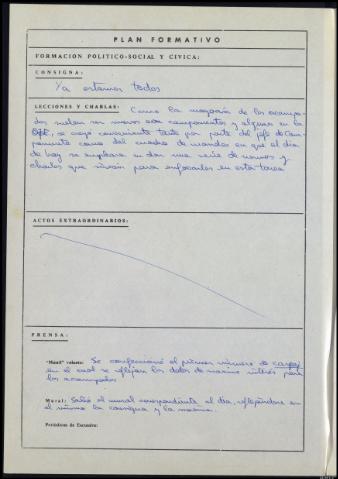 PLAN FORMATIVO
FORMACION POLITICO-SOCIAL Y CIVICA:
CONSIGNA:
Ya estamos todos
LECCIONES Y CHARLAS: Como la mayoría de los acampa-
dos suelen ser nuevos esta componentes y algunos en la
OJE, se creyó conveniente tanto por parte del jefe de Cam-
pamento como del cuadro de mandos en que el día
de hoy se empleara en dar una serie de normas y
charlas que sirvan para enfocarlos en esta tarea
ACTOS EXTRAORDINARIOS:
PRENSA:
"Mástil" volante: Se confeccionó el primer número de
en el cual se reflejan los datos de máximo interés para
los acampados
Mural: Salió el mural correspondiente al día, reflejándose en
el mismo la consigna y la máxima.
Periódicos de Escuadra: